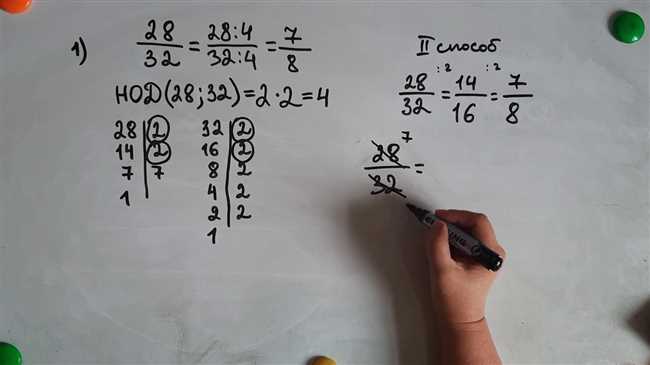 1) 28/32 = 28:4/32:4 = 7/8
НОД(28; 32) = 2 · 2 = 4
28 | 2
14 | 2
7 | 7
1
32 | 2
16 | 2
8 | 2
4 | 2
2 | 2
1
II способ
:2 :2
28/32 = 14/16 = 7/8
7
28/32 =